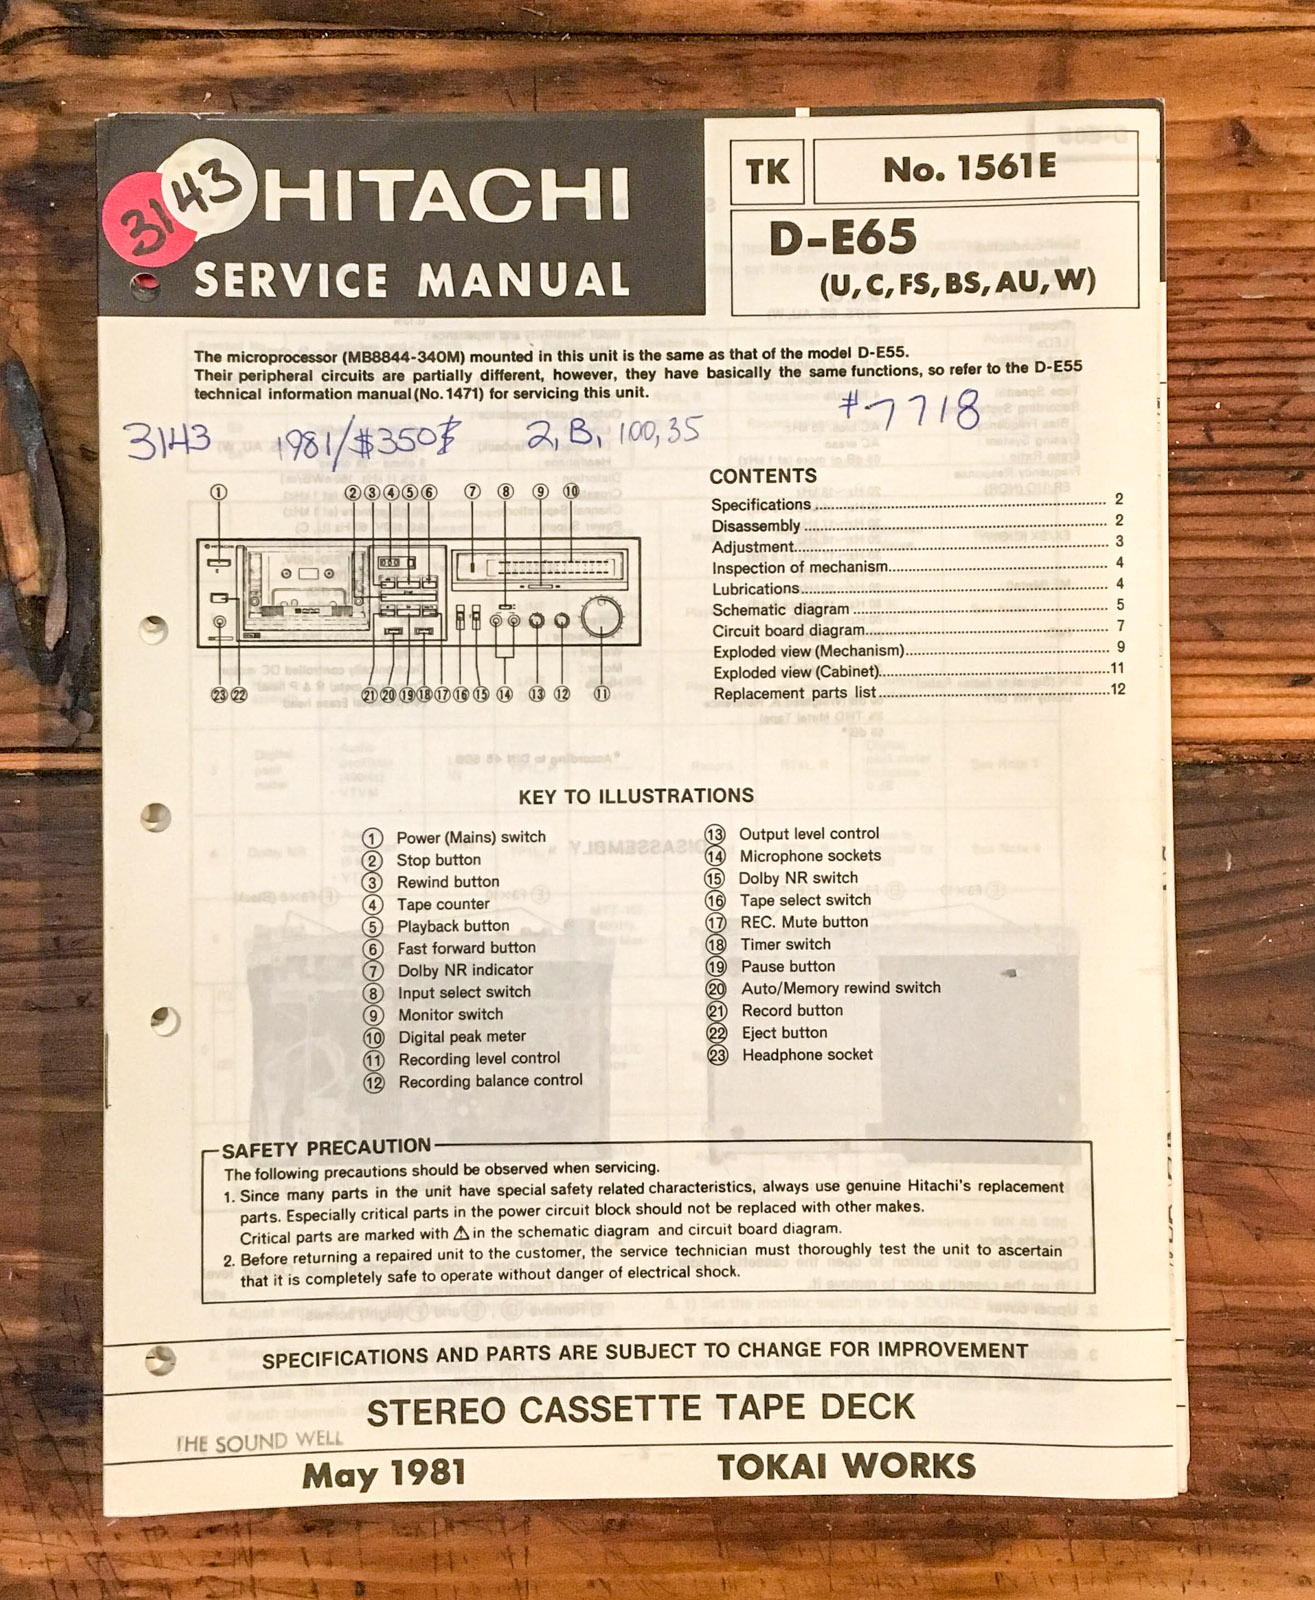 3143
HITACHI
SERVICE MANUAL
TK
No. 1561E
D-E65
(U, C, FS, BS, AU, W)
The microprocessor (MB8844-340M) mounted in this unit is the same as that of the model D-E55.
Their peripheral circuits are partially different, however, they have basically the same functions, so refer to the D-E55
technical information manual (No. 1471) for servicing this unit.
3143 1981/$350 2, B, 100, 35 #7718
① ② ③ ④ ⑤ ⑥ ⑦ ⑧ ⑨ ⑩
㉓ ㉒ ㉑ ⑳ ⑲ ⑱ ⑰ ⑯ ⑮ ⑭ ⑬ ⑫ ⑪
CONTENTS
Specifications ........ 2
Disassembly ........ 2
Adjustment ........ 3
Inspection of mechanism ........ 4
Lubrications ........ 4
Schematic diagram ........ 5
Circuit board diagram ........ 7
Exploded view (Mechanism) ........ 9
Exploded view (Cabinet) ........ 11
Replacement parts list ........ 12
KEY TO ILLUSTRATIONS
① Power (Mains) switch
② Stop button
③ Rewind button
④ Tape counter
⑤ Playback button
⑥ Fast forward button
⑦ Dolby NR indicator
⑧ Input select switch
⑨ Monitor switch
⑩ Digital peak meter
⑪ Recording level control
⑫ Recording balance control
⑬ Output level control
⑭ Microphone sockets
⑮ Dolby NR switch
⑯ Tape select switch
⑰ REC. Mute button
⑱ Timer switch
⑲ Pause button
⑳ Auto/Memory rewind switch
㉑ Record button
㉒ Eject button
㉓ Headphone socket
SAFETY PRECAUTION
The following precautions should be observed when servicing.
1. Since many parts in the unit have special safety related characteristics, always use genuine Hitachi's replacement
parts. Especially critical parts in the power circuit block should not be replaced with other makes.
Critical parts are marked with ⚠ in the schematic diagram and circuit board diagram.
2. Before returning a repaired unit to the customer, the service technician must thoroughly test the unit to ascertain
that it is completely safe to operate without danger of electrical shock.
SPECIFICATIONS AND PARTS ARE SUBJECT TO CHANGE FOR IMPROVEMENT
STEREO CASSETTE TAPE DECK
THE SOUND WELL
May 1981
TOKAI WORKS